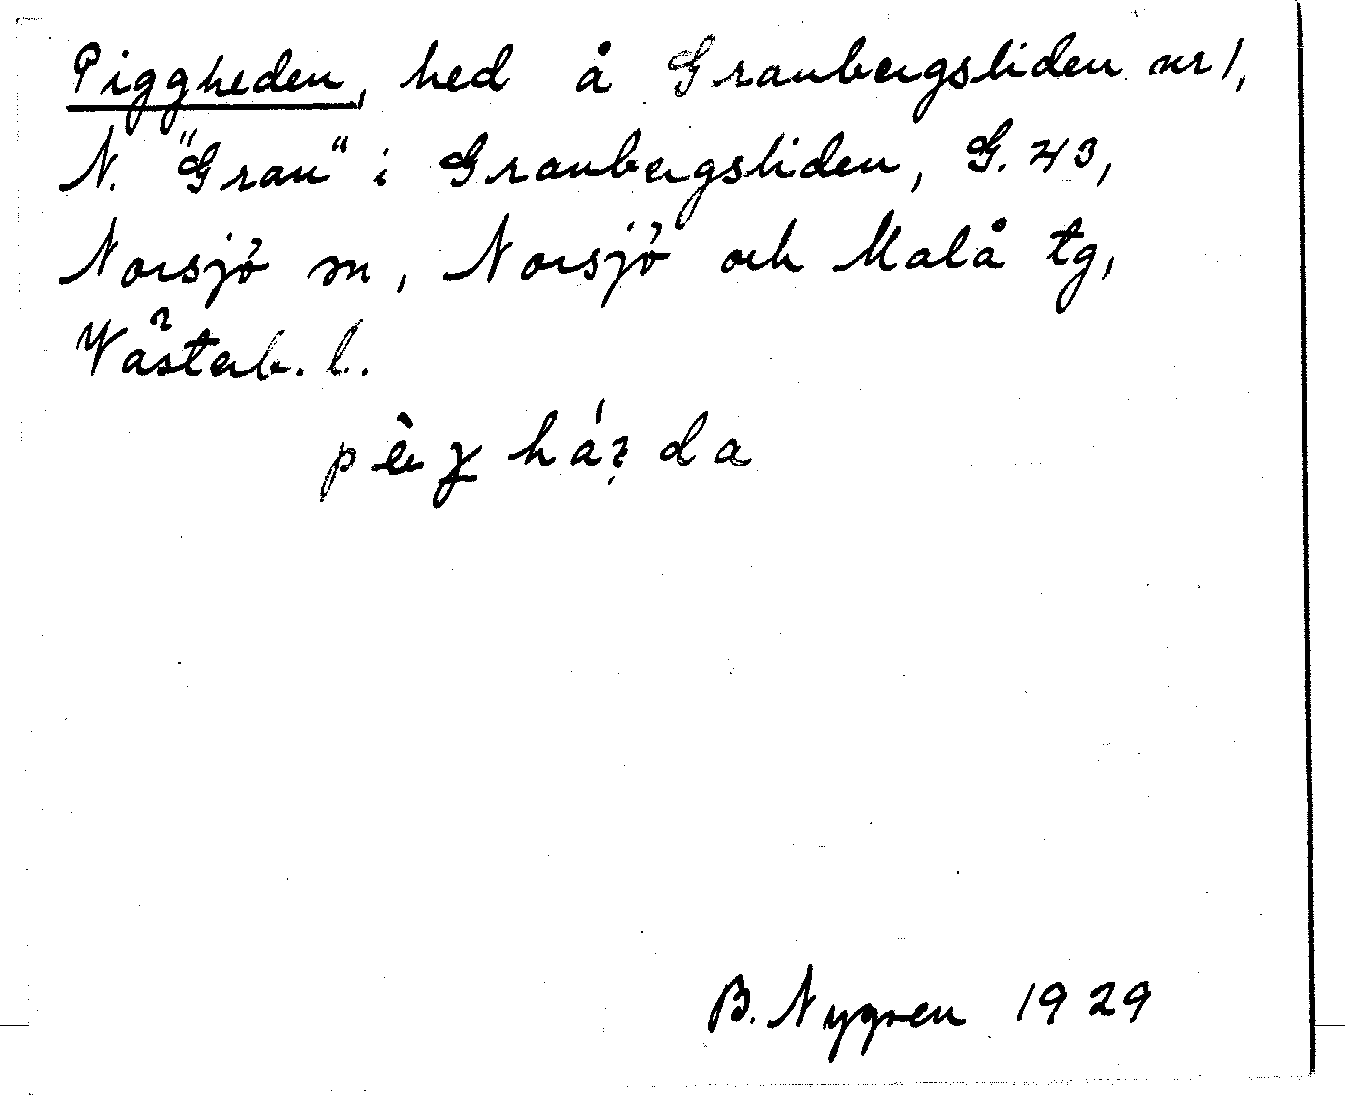 Piggheden, hed å Granbergsliden nr 1,
N. "Gran" i Granbergsliden, G. 43,
Norsjö sn, Norsjö och Malå tg,
Västerb. l.
B. Nygren 1929